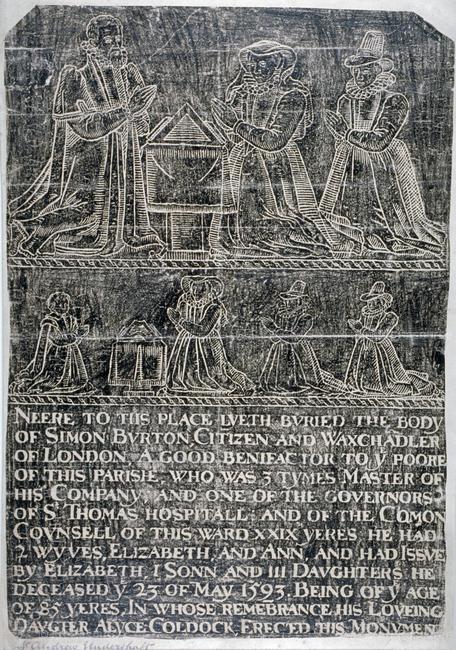 NEERE TO THIS PLACE LYETH BVRIED THE BODY
OF SIMON BVRTON, CITIZEN AND WAXCHADLER
OF LONDON, A GOOD BENIFACTOR TO Yͤ POORE
OF THIS PARISH, WHO WAS 3 TYMES MASTER OF
HIS COMPANY, AND ONE OF THE GOVERNORS
OF Sᵗ THOMAS HOSPITALL, AND OF THE COMON
COVNSELL OF THIS WARD XXIX YERES. HE HAD
2 WYVES, ELIZABETH, AND ANN, AND HAD ISSVE
BY ELIZABETH I SONN AND III DAVGHTERS HE
DECEASED Yͤ 23 OF MAY 1593, BEING OF Yͤ AGE
OF 85 YERES, IN WHOSE REMEBRANCE, HIS LOVEING
DAVGTER ALYCE COLDOCK, ERECTED THIS MONVMEN
St Andrew Undershaft